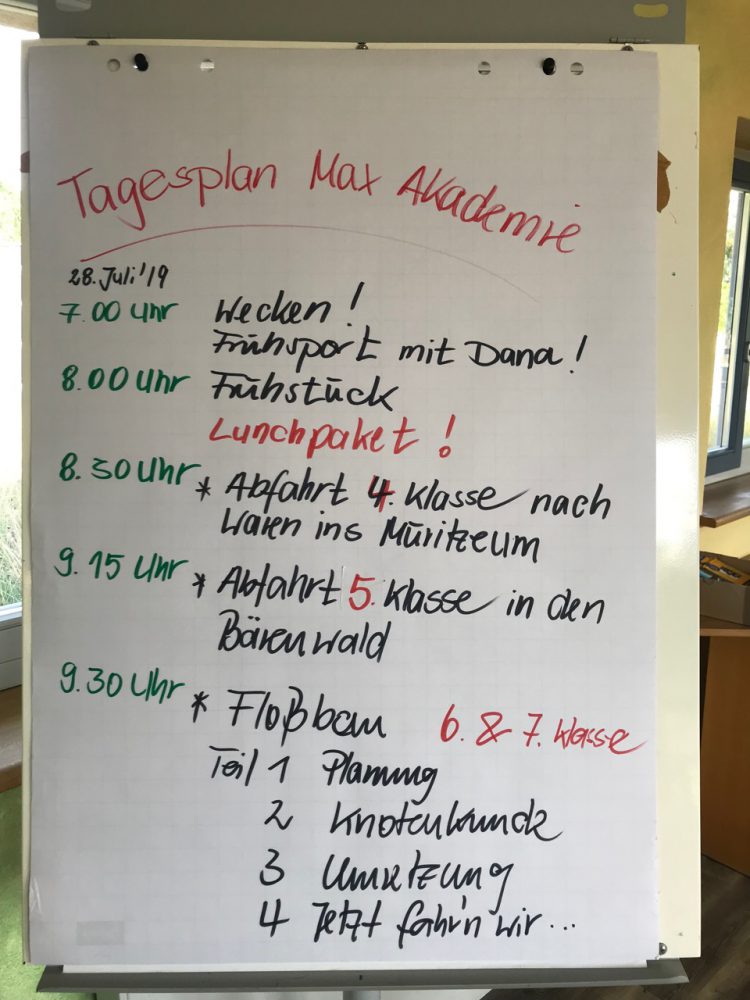 Tagesplan Max Akademie
28. Juli '19
7.00 Uhr Wecken!
Frühsport mit Dana!
8.00 Uhr Frühstück
Lunchpaket!
8.30 Uhr * Abfahrt 4. Klasse nach
Waren ins Müritzeum
9.15 Uhr * Abfahrt 5. Klasse in den
Bärenwald
9.30 Uhr * Floßbau 6. & 7. Klasse
Teil 1 Planung
2 Knotenkunde
3 Umsetzung
4 Jetzt fahr'n wir...